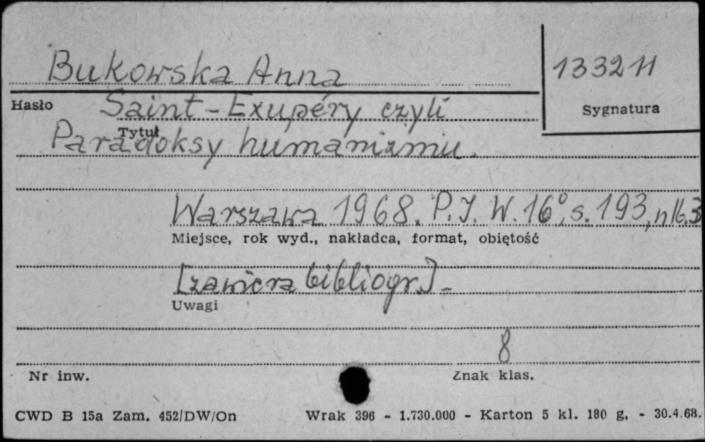 Bukowska Anna
133211
Hasło
Sygnatura
Saint-Exupéry czyli
Tytuł
Paradoksy humanizmu.
Warszawa 1968. P.I.W. 16°, s. 193, nlb. 3
Miejsce, rok wyd., nakładca, format, objętość
[zawiera bibliogr.] -
Uwagi
8
Nr inw.
Znak klas.
CWD B 15a Zam. 452/DW/On Wrak 396 - 1.730.000 - Karton 5 kl. 180 g. - 30.4.68.